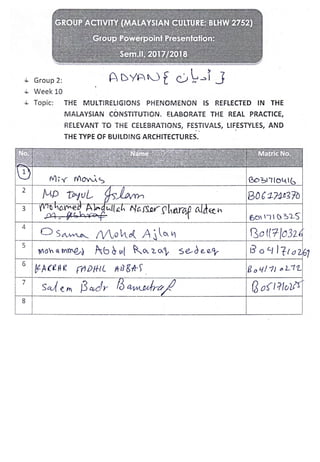 GROUP ACTIVITY (MALAYSIAN CULTURE: BLHW 2752)
Group Powerpoint Presentation:
Sem.II, 2017/2018
Group 2: ADYAN { أديان }
Week 10
Topic: THE MULTIRELIGIONS PHENOMENON IS REFLECTED IN THE
MALAYSIAN CONSTITUTION. ELABORATE THE REAL PRACTICE,
RELEVANT TO THE CELEBRATIONS, FESTIVALS, LIFESTYLES, AND
THE TYPE OF BUILDING ARCHITECTURES.
No. Name Matric No.
1 Mir Monis B031710416
2 MD Tayul Islam B061710370
3 Mohamed Abdullah Nasser Sharaf aldeen
B01710325
4 Osama Mohd Ajlan B011710326
5 Mohammed Abdul Razaq sedeeq B041710269
6 KARRAR FADHIL ABBAS B041710272
7 Salem Badr
8